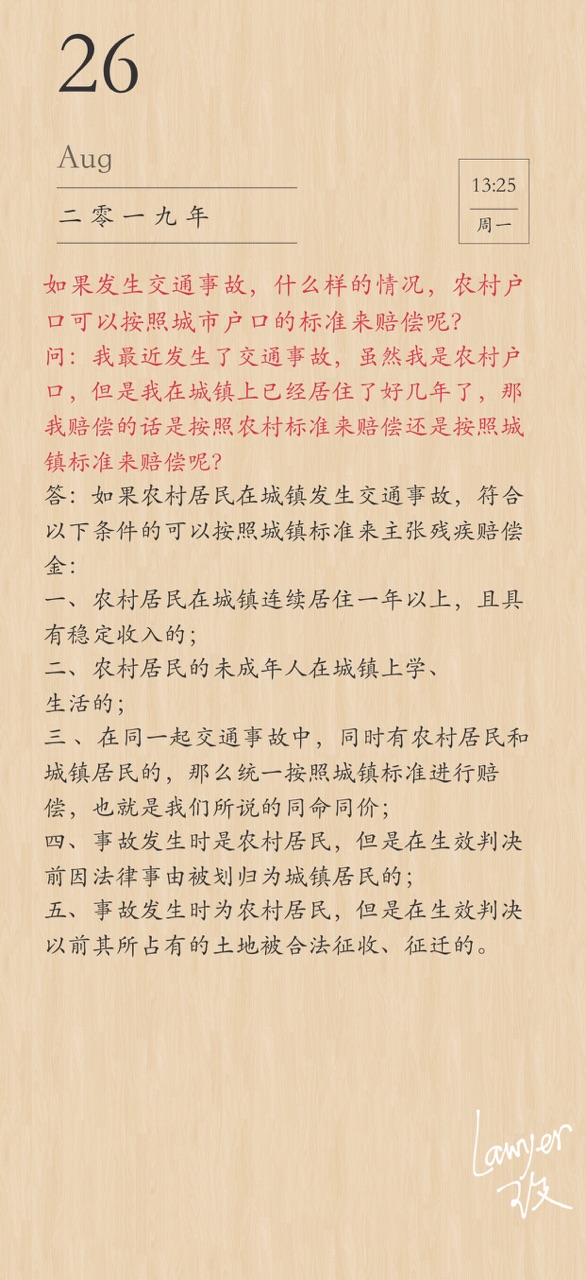 26
Aug
二零一九年
13:25
周一
如果发生交通事故，什么样的情况，农村户
口可以按照城市户口的标准来赔偿呢？
问：我最近发生了交通事故，虽然我是农村户
口，但是我在城镇上已经居住了好几年了，那
我赔偿的话是按照农村标准来赔偿还是按照城
镇标准来赔偿呢？
答：如果农村居民在城镇发生交通事故，符合
以下条件的可以按照城镇标准来主张残疾赔偿
金：
一、农村居民在城镇连续居住一年以上，且具
有稳定收入的；
二、农村居民的未成年人在城镇上学、
生活的；
三 、在同一起交通事故中，同时有农村居民和
城镇居民的，那么统一按照城镇标准进行赔
偿，也就是我们所说的同命同价；
四、事故发生时是农村居民，但是在生效判决
前因法律事由被划归为城镇居民的；
五、事故发生时为农村居民，但是在生效判决
以前其所占有的土地被合法征收、征迁的。
Lawyer